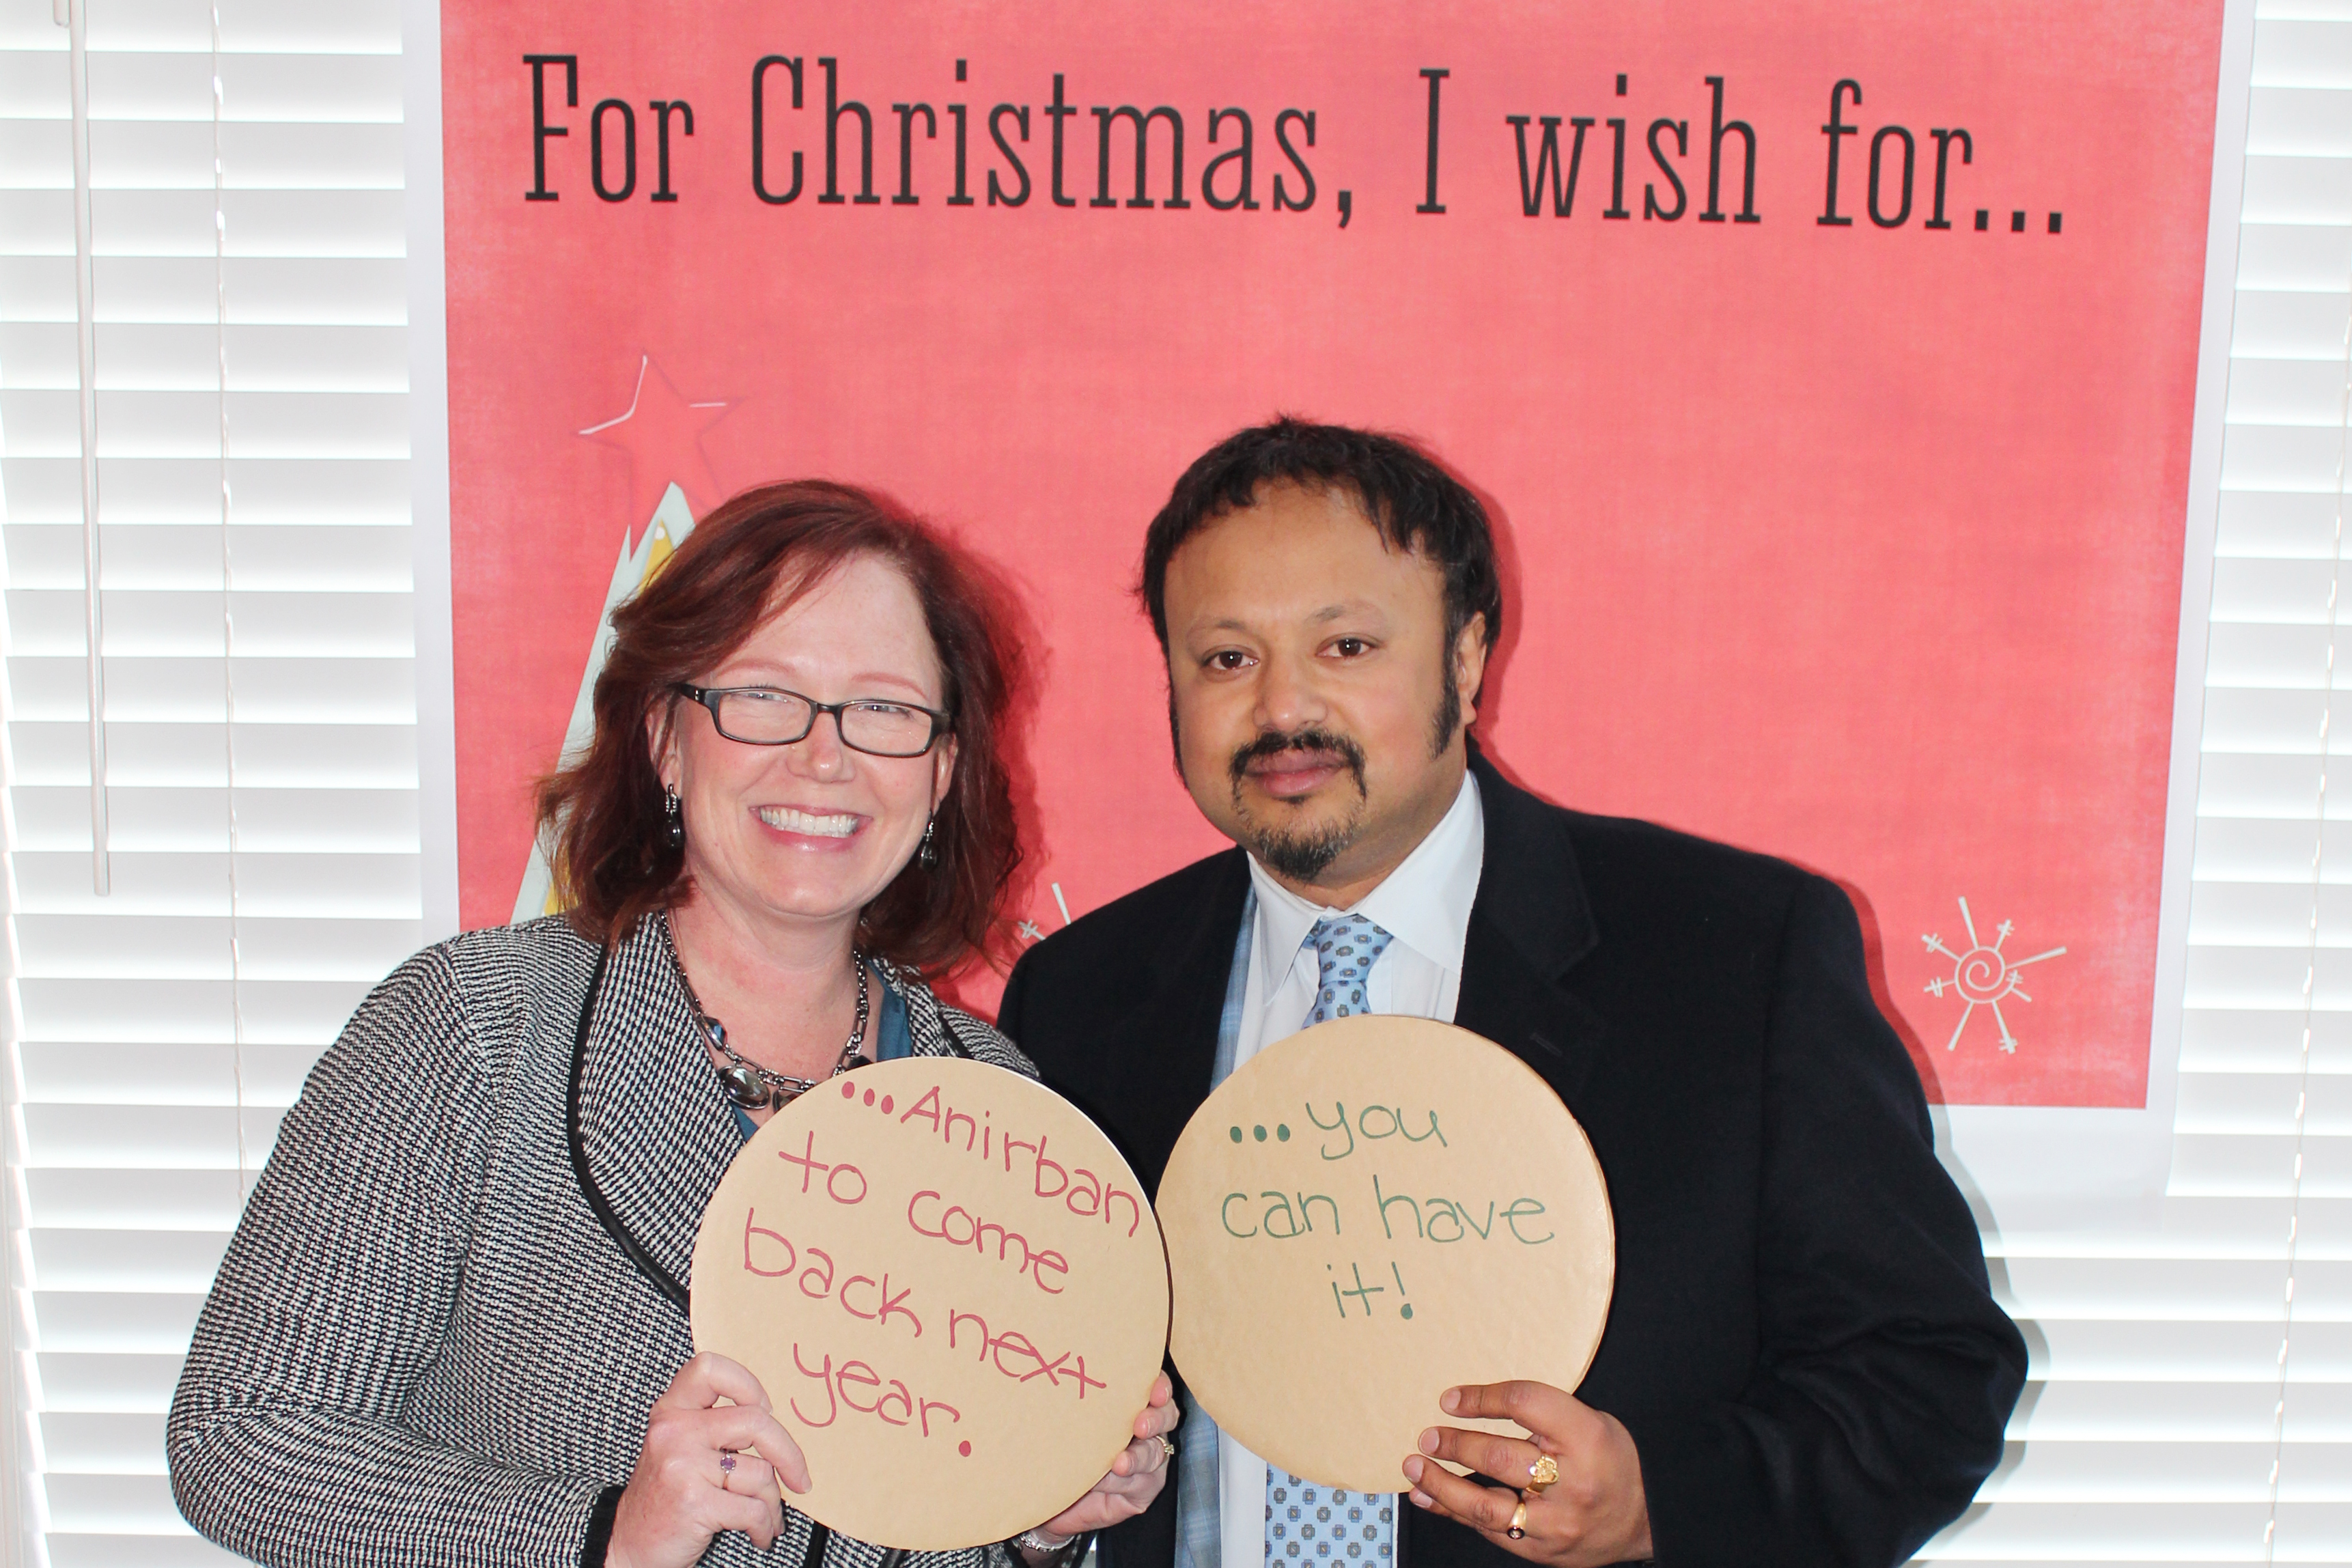 For Christmas, I wish for...
...Anirban
to come
back next
year.
...you
can have
it!